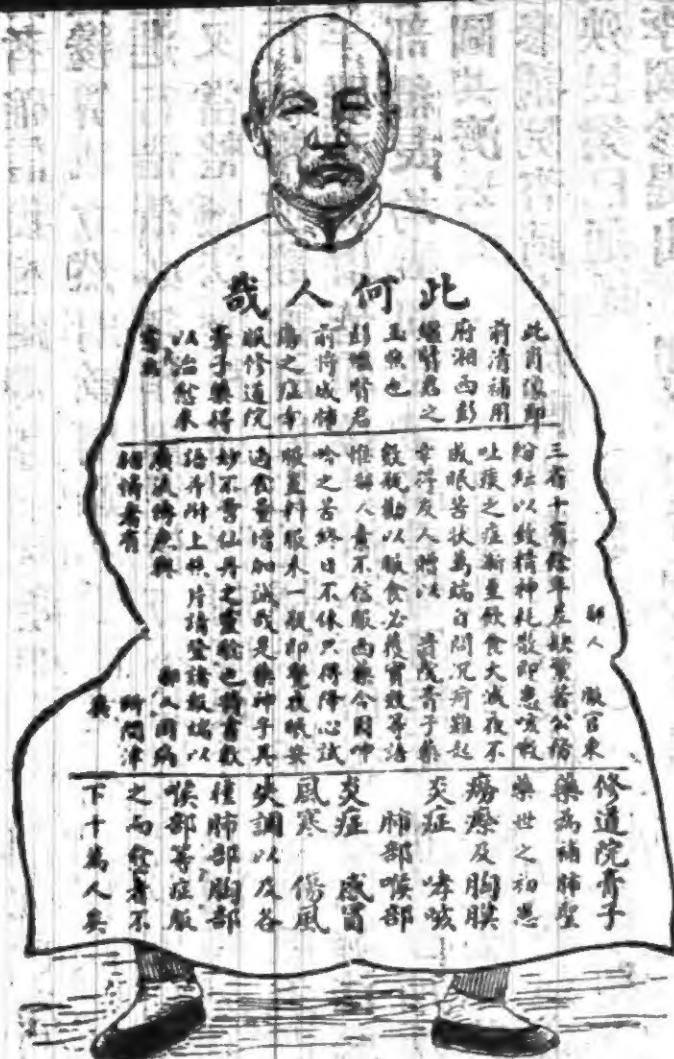 此何人哉
此肖像即
前清補用
府湘西彭
繼賢君之
玉照也
彭繼賢君
前侍成肺
癆之症幸
服修道院
膏子藥得
以治愈來
書云
鄙人 歷官東
三省十有餘年差缺繁苦公務
紛紜以致精神耗散即患咳嗽
吐痰之症漸至飲食大減夜不
成眠苦狀萬端自問沉疴難起
幸得友人贈以 膏子藥
數瓶勸以服食必獲實效等語
惟鄙人素不信服西藥今因呻
吟之苦終日不休只得降心試
服豈料服未一瓶即覺夜眠安
適食量增加誠哉是藥神乎其
妙不啻仙丹之靈驗也特書數
語并附上照片請登諸報端以
廣流傳庶與 鄙人同病
相憐者有 所問津
矣
修道院膏子
藥為補肺聖
藥世之初患
癆瘵及胸膜
炎症 哮咳
肺部喉部
炎症 感冒
風寒 傷風
失調以及各
種肺部胸部
喉部等症服
之而愈者不
下千萬人矣